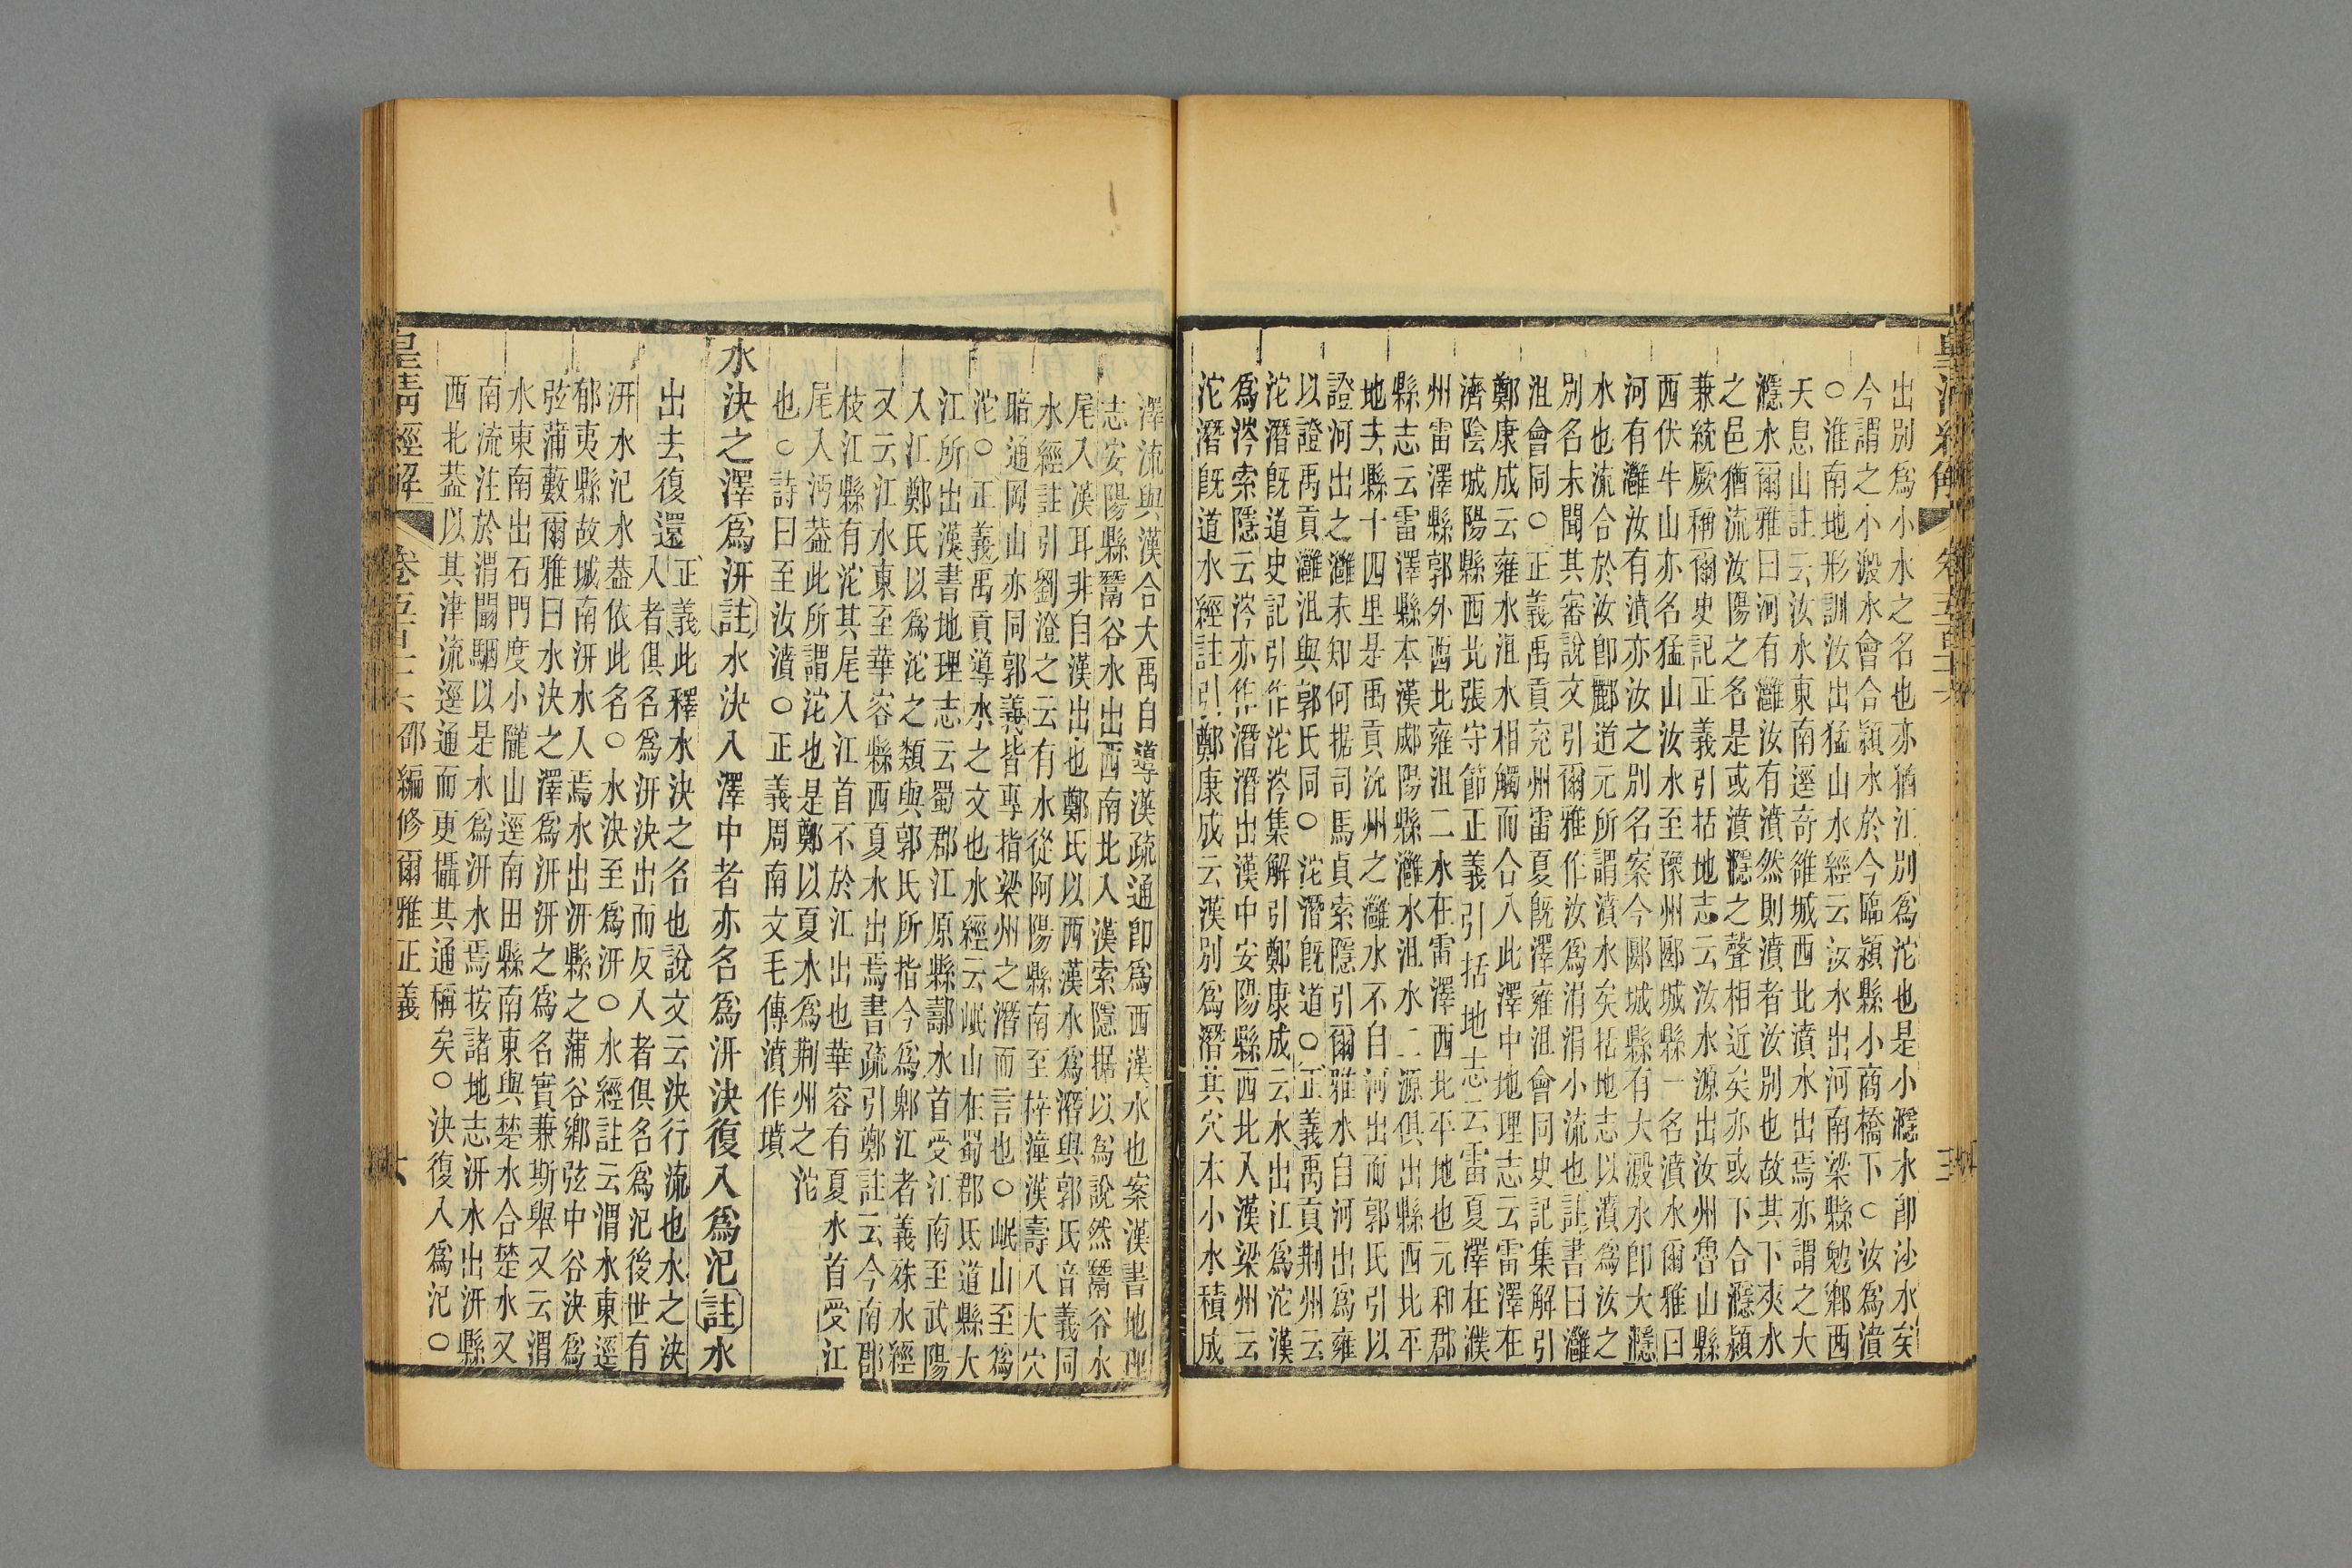 出別爲小水之名也亦猶江別爲沱也是小濦水卽沙水矣
今謂之小濦水會合潁水於今臨潁縣小商橋下○汝爲濆
○淮南地形訓汝出猛山水經云汝水出河南梁縣勉鄉西
天息山註云汝水東南逕奇雒城西北濆水出焉亦謂之大
濦水爾雅曰河有灉汝有濆然則濆者汝別也故其下夾水
之邑猶流汝陽之名是或濆濦之聲相近矣亦或下合濦潁
兼統厥稱爾史記正義引括地志云汝水源出汝州魯山縣
西伏牛山亦名猛山汝水至豫州郾城縣一名濆水爾雅曰
河有灉汝有濆亦汝之別名案今郾城縣有大濦水卽大濦
水也流合於汝卽酈道元所謂濆水矣括地志以濆爲汝之
別名未聞其審說文引爾雅作汝爲涓涓小流也註書曰灉
沮會同○正義禹貢兗州雷夏旣澤雍沮會同史記集解引
鄭康成云雍水沮水相觸而合入此澤中地理志云雷澤在
濟陰城陽縣西北張守節正義引括地志云雷夏澤在濮
州雷澤縣郭外西北雍沮二水在雷澤西北平地也元和郡
縣志云雷澤縣本漢郕陽縣灉水沮水二源俱出縣西北平
地去縣十四里是禹貢沇州之灉水不自河出而郭氏引以
證河出之灉未知何据司馬貞索隱引爾雅水自河出爲雍
以證禹貢灉沮與郭氏同○沱潛旣道○正義禹貢荆州云
沱潛旣道史記引作沱涔集解引鄭康成云水出江爲沱漢
爲涔索隱云涔亦作潛潛出漢中安陽縣西北入漢梁州云
沱潛旣道水經註引鄭康成云漢別爲潛其穴本小水積成
澤流與漢合大禹自導漢疏通卽爲西漢水也案漢書地理
志安陽縣鬵谷水出西南北入漢索隱据以爲說然鬵谷水
尾入漢耳非自漢出也鄭氏以西漢水爲潛與郭氏音義同
水經註引劉澄之云有水從阿陽縣南至梓潼漢壽入大穴
暗通岡山亦同郭義皆專指梁州之潛而言也○岷山至爲
沱○正義禹貢導水之文也水經云岷山在蜀郡氐道縣大
江所出漢書地理志云蜀郡江原縣鄯水首受江南至武陽
入江鄭氏以爲沱之類與郭氏所指今爲鄹江者義殊水經
又云江水東至華容縣西夏水出焉書疏引鄭註云今南郡
枝江縣有沱其尾入江首不於江出也華容有夏水首受江
尾入沔葢此所謂沱也是鄭以夏水爲荆州之沱
也○詩曰至汝濆○正義周南文毛傳濆作墳
水決之澤爲汧註水決入澤中者亦名爲汧決復入爲氾註水
出去復還正義此釋水決之名也說文云決行流也水之決
入者俱名爲汧決出而反入者俱名爲氾後世有
汧水氾水葢依此名○水決至爲汧○水經註云渭水東逕
郁夷縣故城南汧水人焉水出汧縣之蒲谷鄉弦中谷決爲
弦蒲藪爾雅曰水決之澤爲汧汧之爲名實兼斯舉又云渭
水東南出石門度小隴山逕南田縣南東與楚水合楚水又
南流注於渭闞駰以是水爲汧水焉按諸地志汧水出汧縣
西北葢以其津流逕通而更攝其通稱矣○決復入爲氾○
皇淸經解 卷五百二十六 邵編修爾雅正義